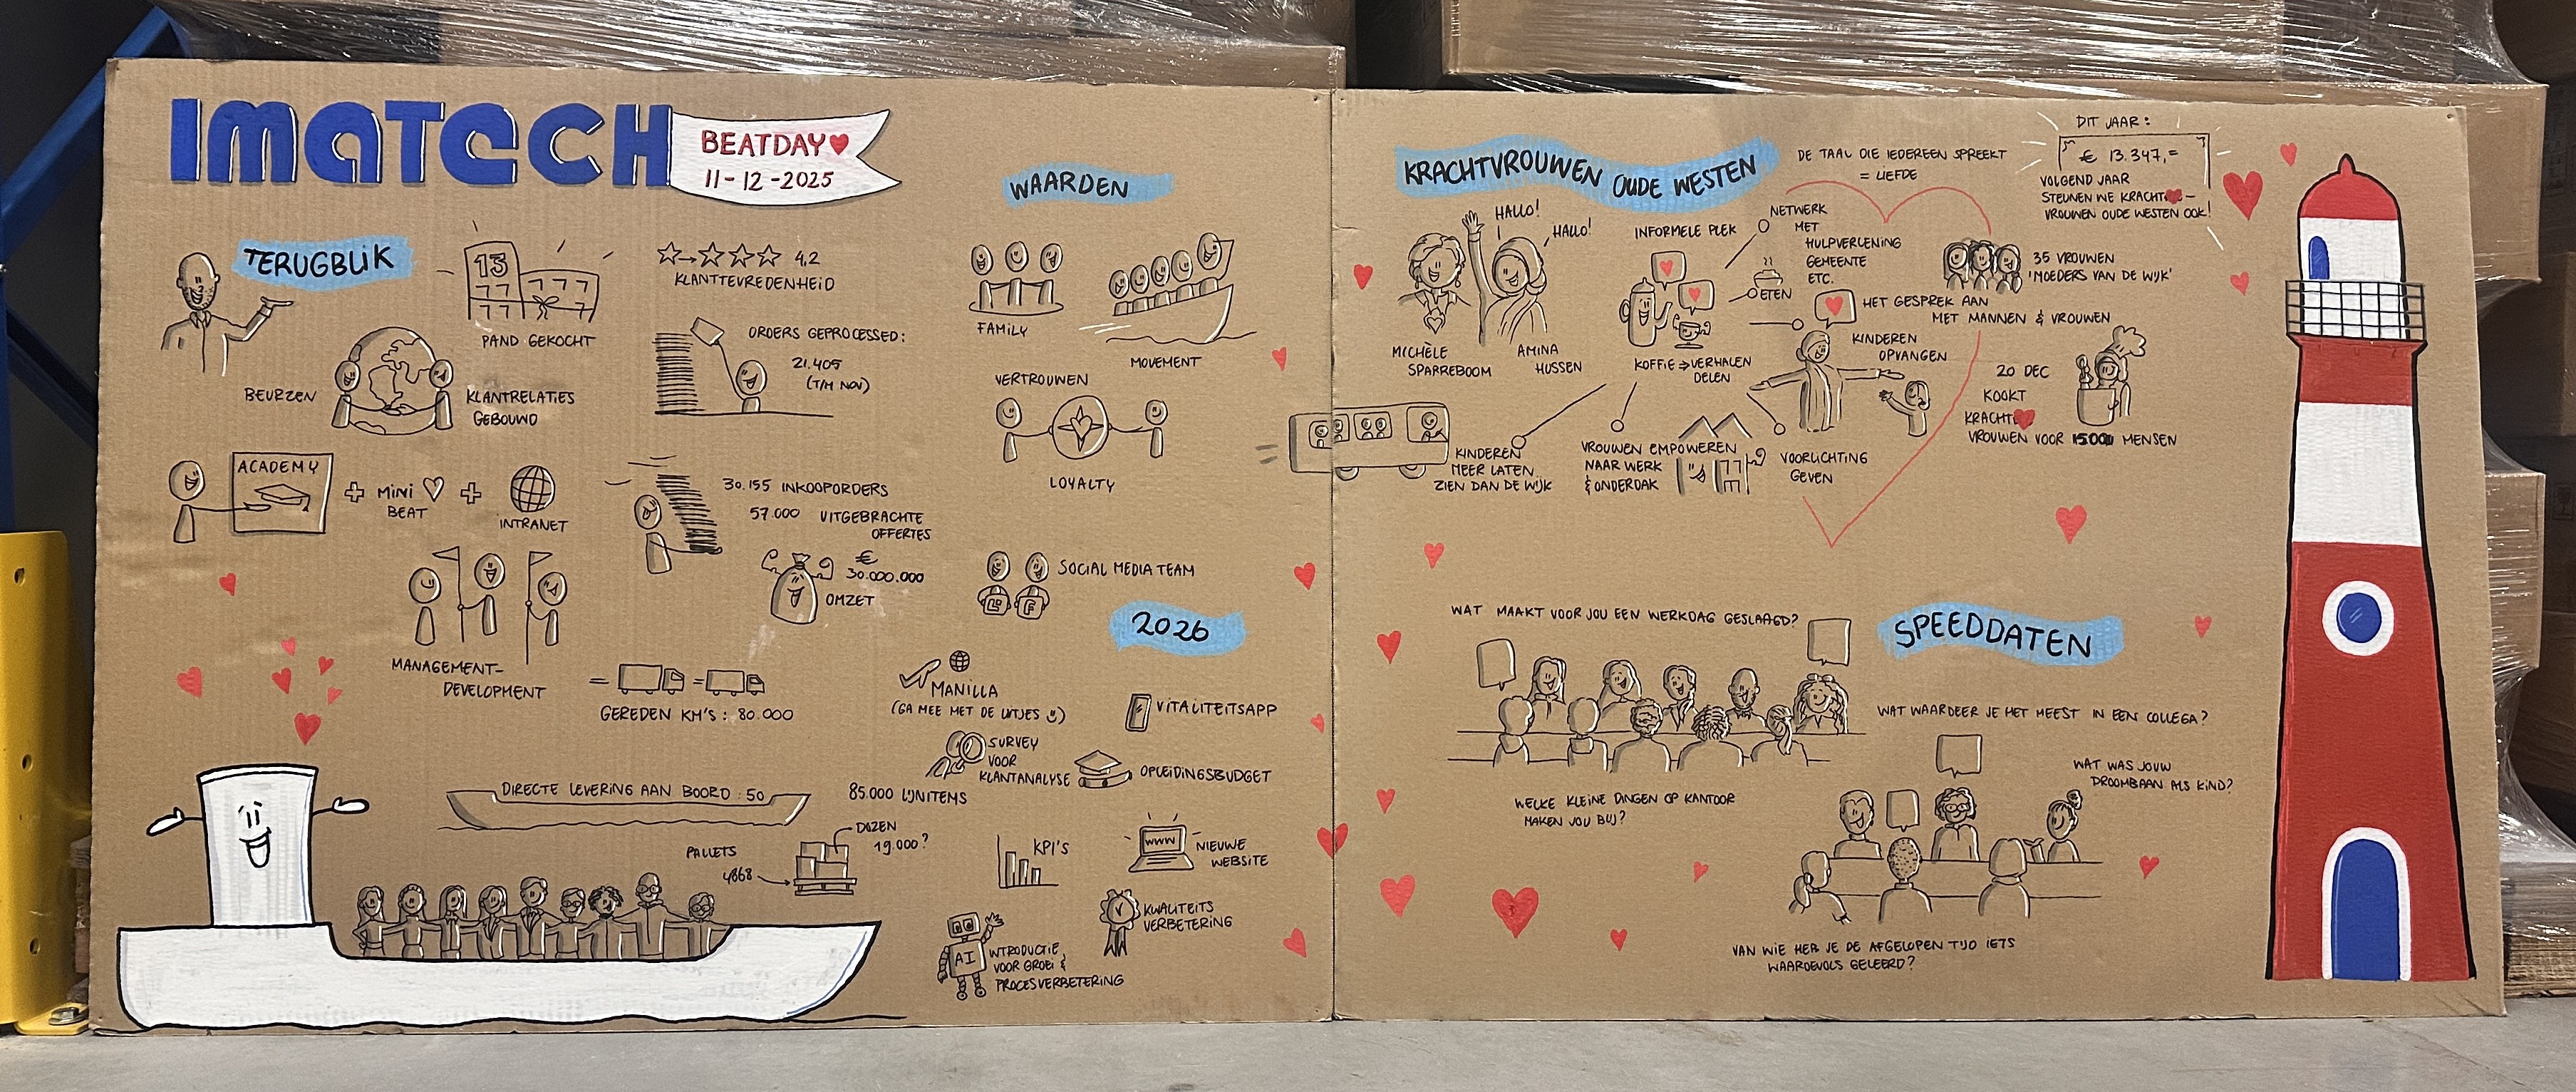 IMATECH
BEATDAY
11-12-2025
TERUGBLIK
13
PAND GEKOCHT
BEURZEN
KLANTRELATIES
GEBOUWD
4,2
KLANTTEVREDENHEID
ORDERS GEPROCESSED:
21.405
(T/M NOV)
ACADEMY
+ MINI
BEAT
+
INTRANET
30.155 INKOOPORDERS
57.000 UITGEBRACHTE
OFFERTES
€
30.000.000
OMZET
MANAGEMENT-
DEVELOPMENT
GEREDEN KM'S: 80.000
DIRECTE LEVERING AAN BOORD: 50
85.000 LIJNITEMS
PALLETS
4868
DOZEN
19.000?
WAARDEN
FAMILY
MOVEMENT
VERTROUWEN
LOYALTY
SOCIAL MEDIA TEAM
F
2026
MANILLA
(GA MEE MET DE UITJES)
VITALITEITSAPP
SURVEY
VOOR
KLANTANALYSE
OPLEIDINGSBUDGET
KPI'S
WWW
NIEUWE
WEBSITE
KWALITEITS
VERBETERING
AI
INTRODUCTIE
VOOR GROEI &
PROCESVERBETERING
KRACHTVROUWEN OUDE WESTEN
HALLO!
HALLO!
MICHÈLE
SPARREBOOM
AMINA
HUSSEN
INFORMELE PLEK
KOFFIE => VERHALEN
DELEN
NETWERK
MET
HULPVERLENING
GEMEENTE
ETC.
ETEN
HET GESPREK AAN
MET MANNEN & VROUWEN
KINDEREN
OPVANGEN
VOORLICHTING
GEVEN
VROUWEN EMPOWEREN
NAAR WERK
& ONDERDAK
KINDEREN
MEER LATEN
ZIEN DAN DE WIJK
DE TAAL DIE IEDEREEN SPREEKT
= LIEFDE
DIT JAAR:
€ 13.347,=
VOLGEND JAAR
STEUNEN WE KRACHT-
VROUWEN OUDE WESTEN OOK!
35 VROUWEN
'MOEDERS VAN DE WIJK'
20 DEC
KOOKT
KRACHT
VROUWEN VOOR MENSEN
SPEEDDATEN
WAT MAAKT VOOR JOU EEN WERKDAG GESLAAGD?
WELKE KLEINE DINGEN OP KANTOOR
MAKEN JOU BLIJ?
WAT WAARDEER JE HET MEEST IN EEN COLLEGA?
WAT WAS JOUW
DROOMBAAN ALS KIND?
VAN WIE HEB JE DE AFGELOPEN TIJD IETS
WAARDEVOLS GELEERD?